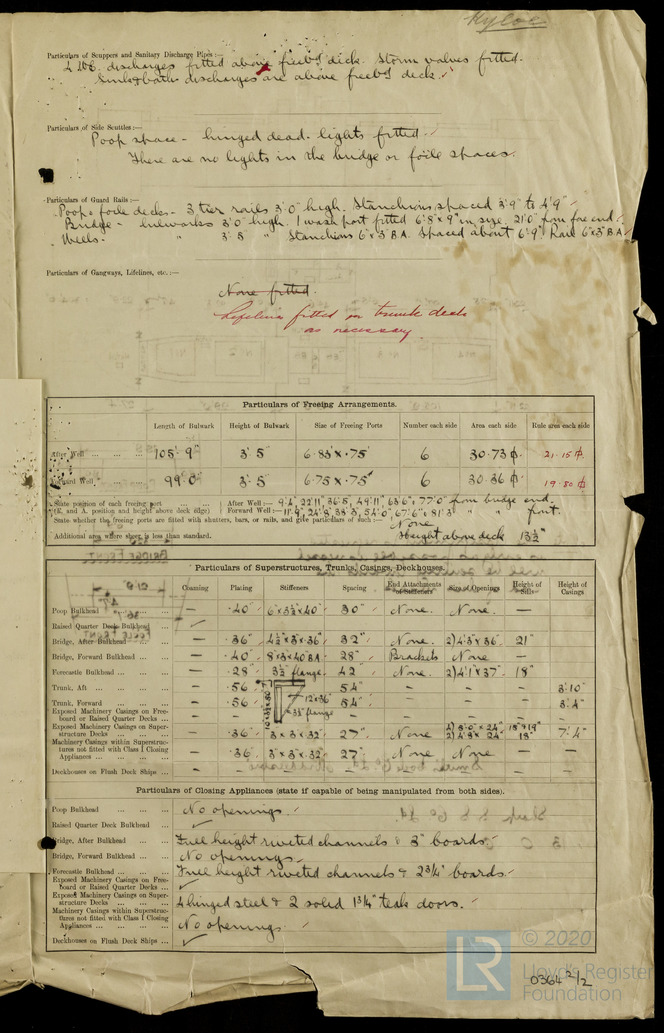 Kyloe
Particulars of Scuppers and Sanitary Discharge Pipes :—
discharges fitted above freebd deck. Storm valves fitted.
Sink & bath discharges are above freebd deck.
Particulars of Side Scuttles :—
Poop space - hinged dead-lights fitted.
There are no lights in the bridge or fo'cle spaces.
Particulars of Guard Rails :—
Poop & fo'cle decks - 3 tier rails 3'.0" high. Stanchions spaced 3'.9" to 4'.9"
Bridge - bulwarks 3'.0" high. 1 wash port fitted 6'.8" x 9" in size, 21'.0" from fore end.
Wells - " 3'.5 " Stanchions 6" x 3" B.A. Spaced about 6'.9" Rail 6" x 3" B.A.
Particulars of Gangways, Lifelines, etc. :—
None fitted.
Lifelines fitted on trunk deck
as necessary.
Particulars of Freeing Arrangements.
Length of Bulwark Height of Bulwark Size of Freeing Ports Number each side Area each side Rule area each side
After Well 105'. 9" 3'. 5" 6.83' x .75' 6 30.73 21.15
Forward Well 99'.0" 3'. 5" 6.75 x .75' 6 30.36 19.80
State position of each freeing port After Well :— 9'.4", 22'.11", 36'.5, 49'.11", 63'.6", 77'.0" from bridge end.
(F. and A. position and height above deck edge) Forward Well :— 11'.9", 24'.8", 38'.3", 54'.0", 67'.6", 81'.3" " " front.
State whether the freeing ports are fitted with shutters, bars, or rails, and give particulars of such :— None
Additional area where sheer is less than standard. Height above deck 13½"
Particulars of Superstructures, Trunks, Casings, Deckhouses.
Coaming Plating Stiffeners Spacing End Attachments of Stiffeners Size of Openings Height of Sills Height of Casings
Poop Bulkhead — .40" 6 x 3½ x .40" 30" None. None. —
Raised Quarter Deck Bulkhead
Bridge, After Bulkhead — .36" 4½" x 3 x .36" 32" None. 2) 4'.3" x 36" 21"
Bridge, Forward Bulkhead — .40" 8" x 3" x .40 BA 28" Brackets None —
Forecastle Bulkhead — .28" 3½" flange. 42" None. 2) 4'.1" x 37" 18"
Trunk, Aft — .56 54" — — — 3'.10"
12 x .36"
3½" flange
Trunk, Forward — .56 54" — — — 3'.4"
Exposed Machinery Casings on Freeboard or Raised Quarter Decks — — — — — — — —
Exposed Machinery Casings on Superstructure Decks — .36" 3 x 3 x .32" 27" None 2) 4'.9" x 24" 18" 7'.4"
Machinery Casings within Superstructures not fitted with Class I Closing Appliances — .36" 3" x 3" x .32" 27" None None — —
Deckhouses on Flush Deck Ships — — — — — — — —
Particulars of Closing Appliances (state if capable of being manipulated from both sides).
Poop Bulkhead No openings.
Raised Quarter Deck Bulkhead
Bridge, After Bulkhead Full height riveted channels & 3" boards.
Bridge, Forward Bulkhead No openings.
Forecastle Bulkhead Full height riveted channels & 2¾" boards.
Exposed Machinery Casings on Freeboard or Raised Quarter Decks
Exposed Machinery Casings on Superstructure Decks 4 hinged steel & 2 solid 1¾" teak doors.
Machinery Casings within Superstructures not fitted with Class I Closing Appliances No openings
Deckhouses on Flush Deck Ships
LR © 2020
Lloyd's Register
Foundation
0364 2/2